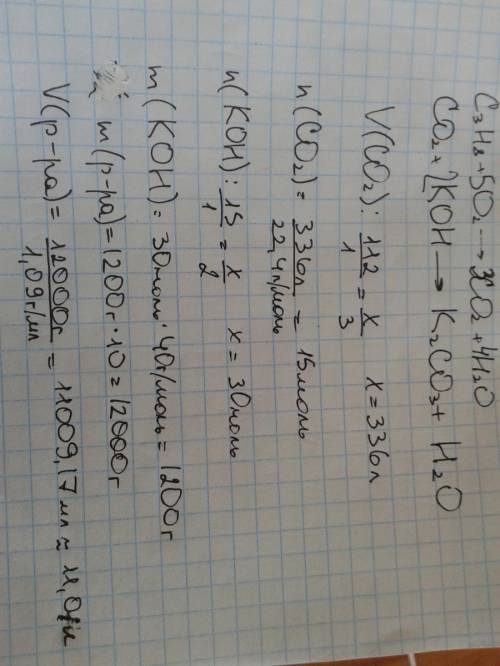 C₃H₈+5O₂→3CO₂+4H₂O
CO₂+2KOH→K₂CO₃+H₂O
V(CO₂): 112/1 = x/3 x=336л
n(CO₂)= 336л/22,4л/моль = 15моль
n(KOH): 15/1 = x/2 x=30моль
m(KOH)= 30моль·40г/моль=1200г
m(р-ра)=1200г·10=12000г
V(р-ра)= 12000г/1,09г/мл = 11009,17мл ≈ 11,01л